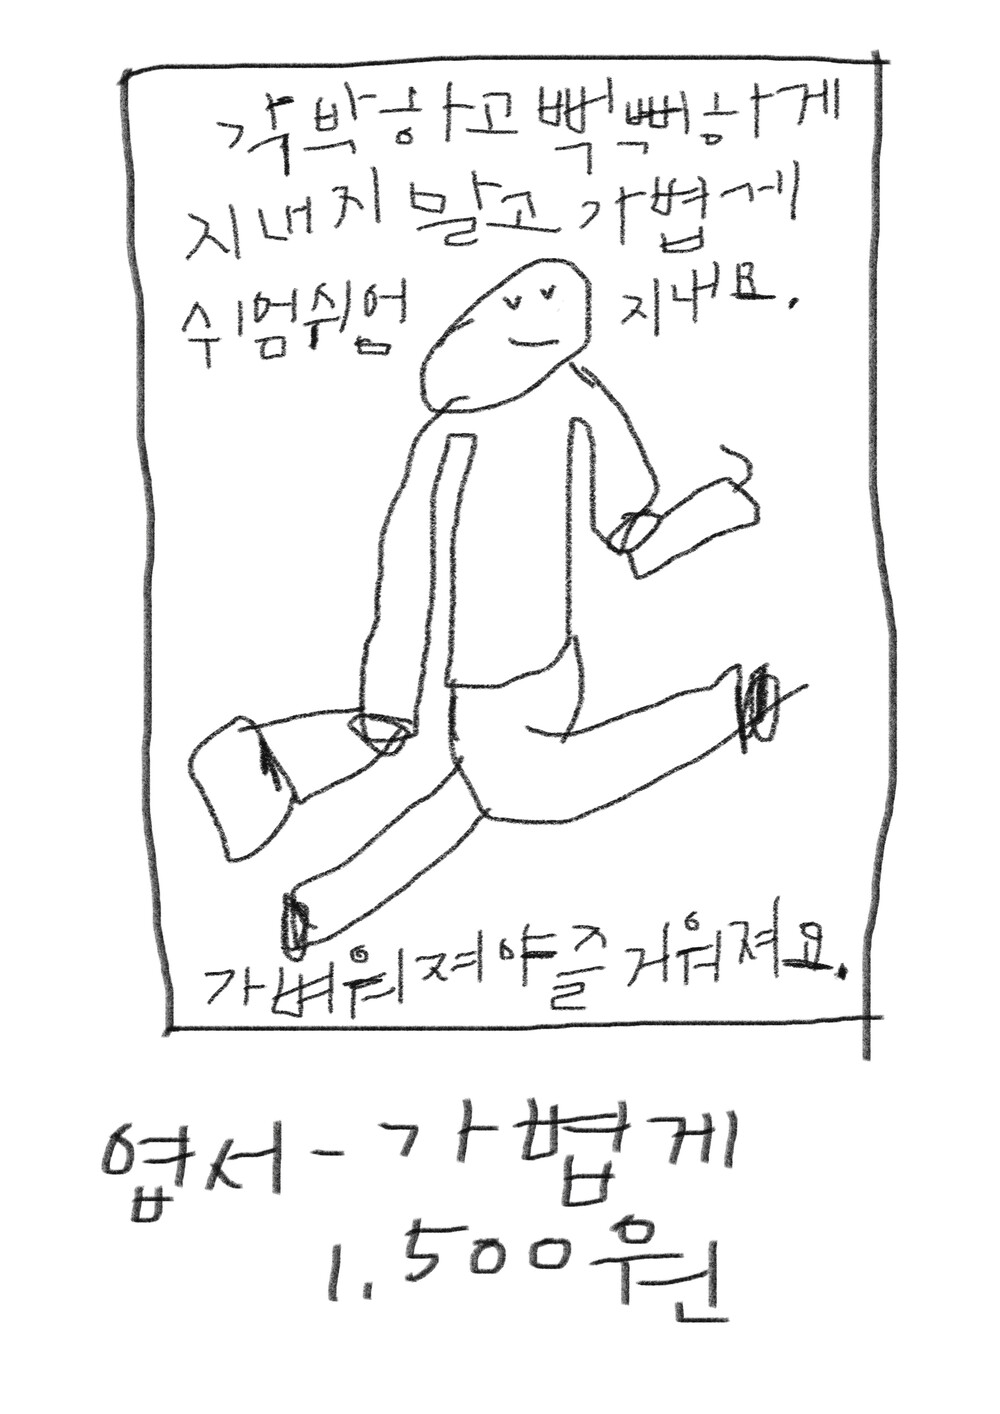 각박하고 빡빡하게
지내지 말고 가볍게
쉬엄쉬엄 지내요.
가벼워져야 즐거워져요.
엽서 - 가볍게
1,500원